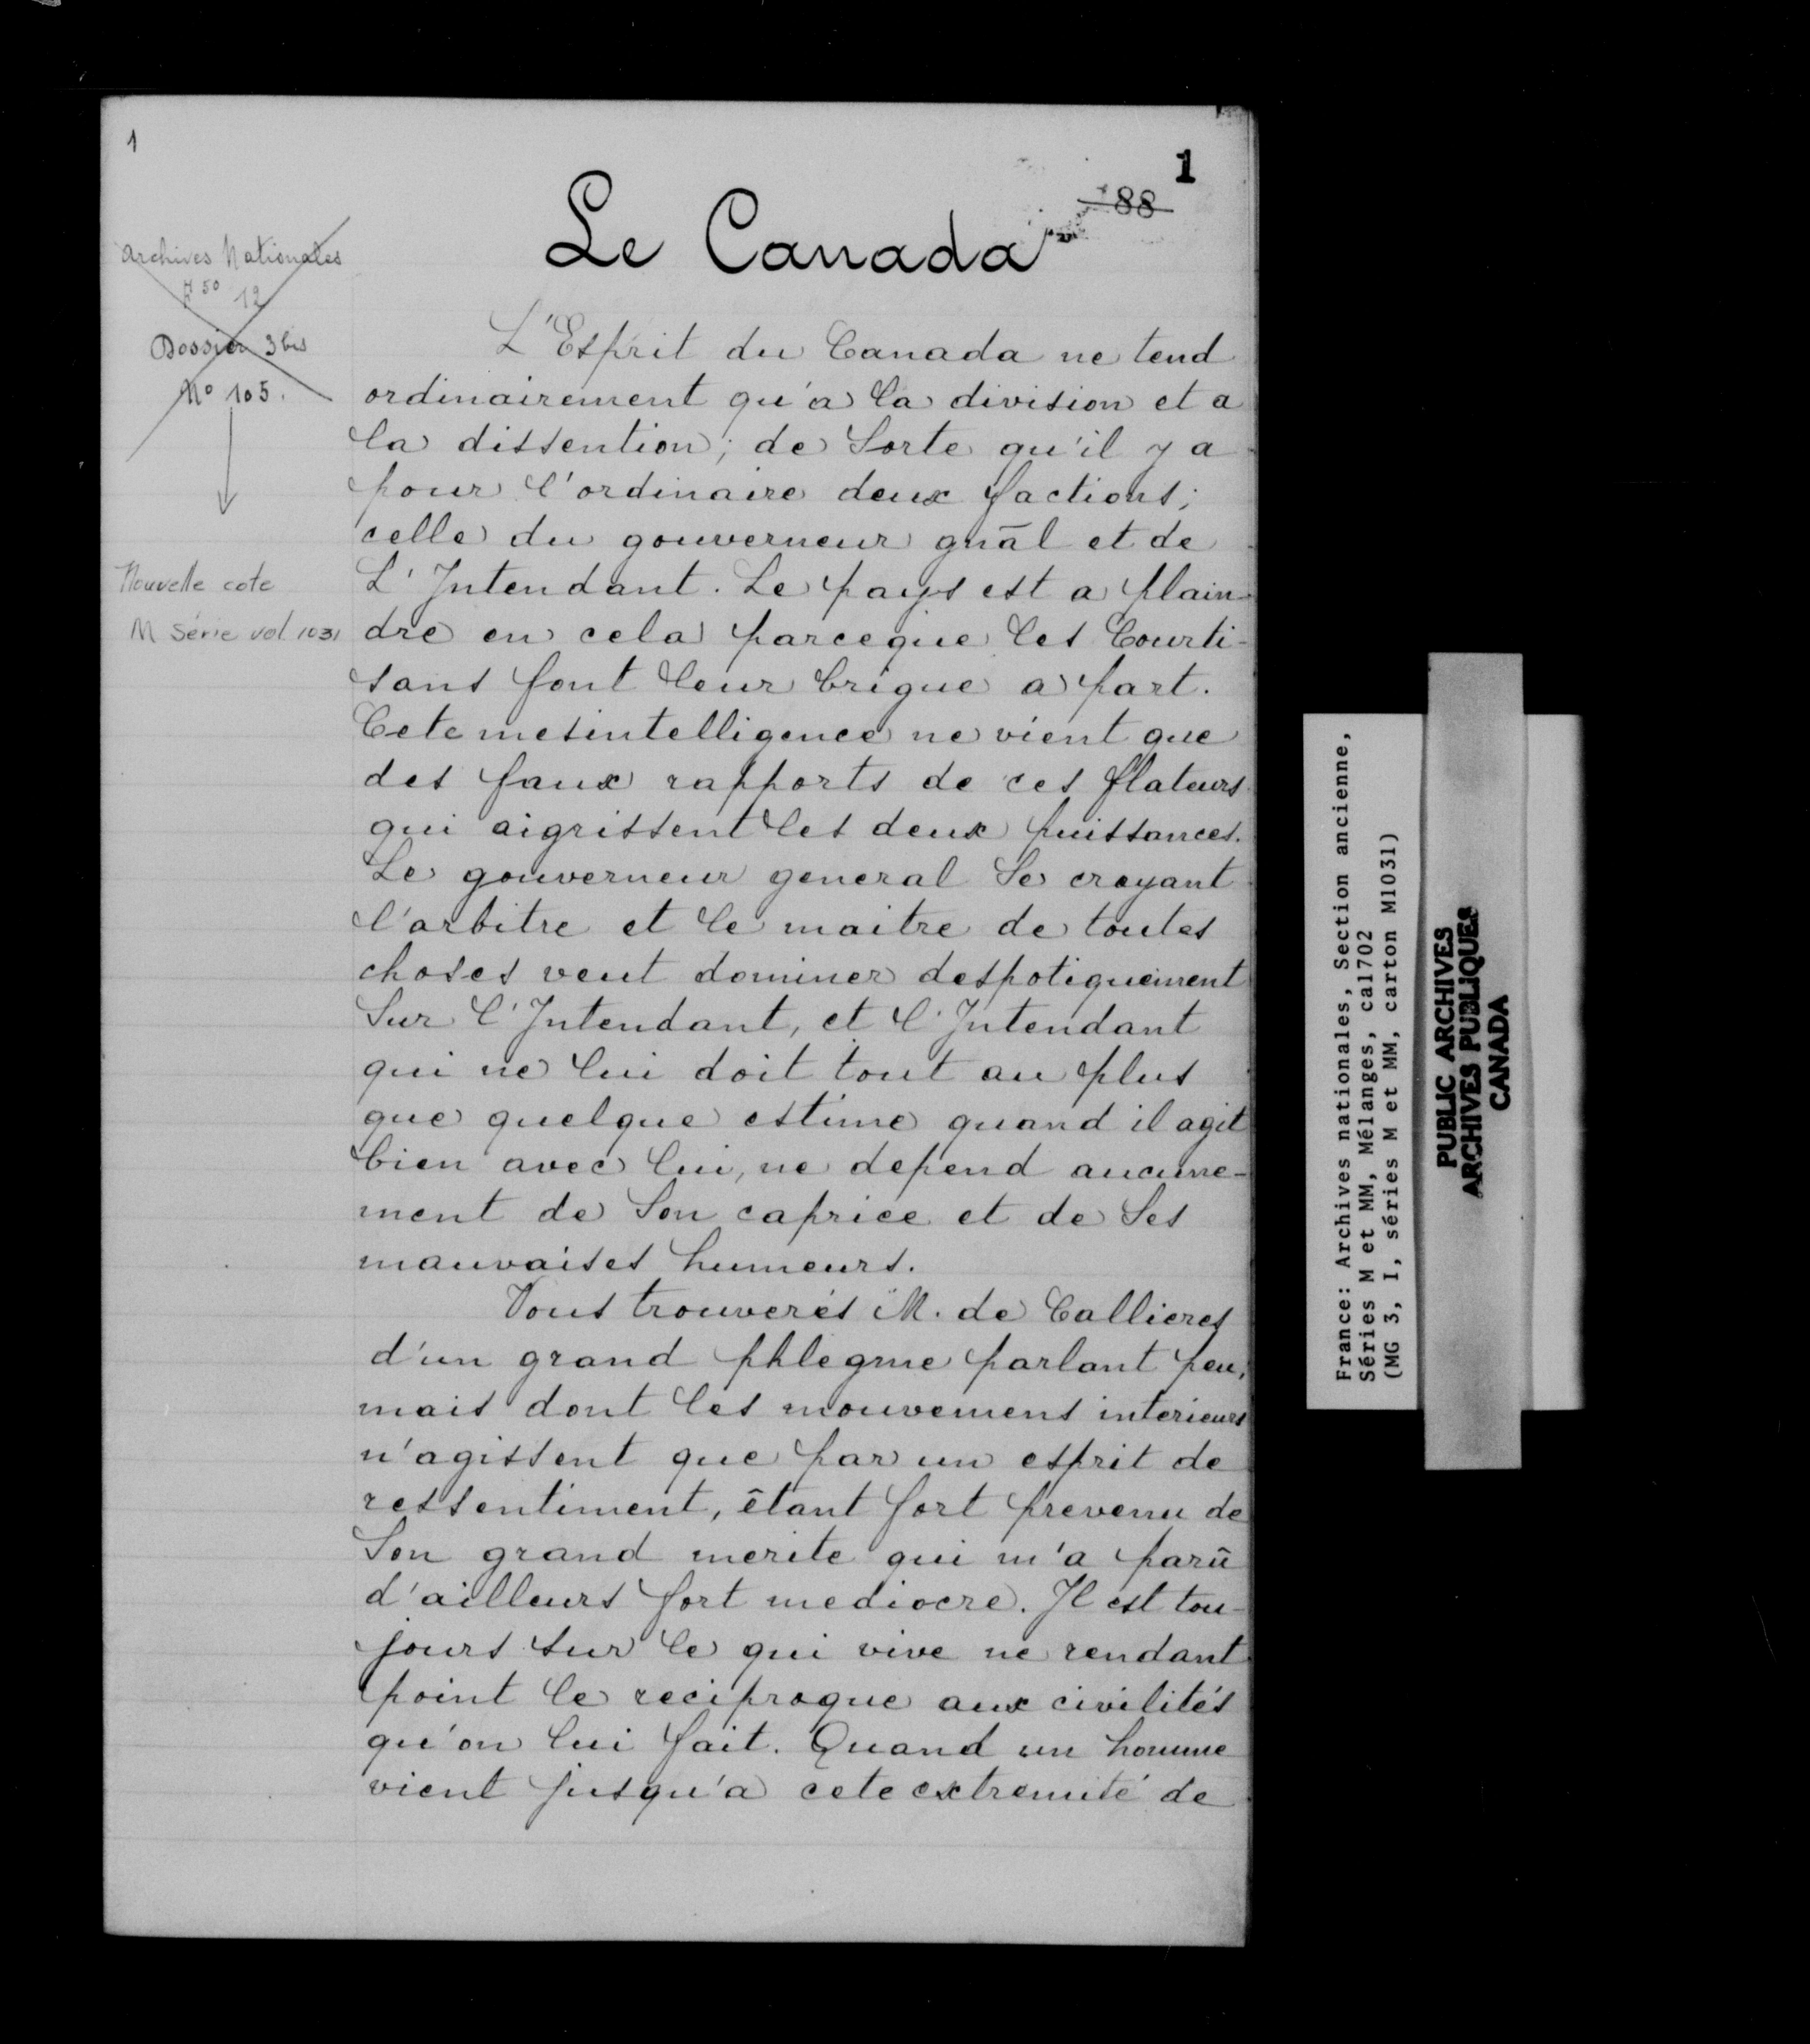 1
1
88
Le Canada
Archives Nationales
12
Dossier 3 bis
No 105.
Nouvelle cote
M Série vol 1031
L'Esprit du Canada ne tend
ordinairement qu'a la division et a
la dissention; de Sorte qu'il y a
pour l'ordinaire deux factions;
celle du gouverneur gnāl et de
L'Intendant. Le pays est a plain-
dre en cela parceque les Courti-
sans font leur brigue a part.
Cete mesintelligence ne vient que
des faux rapports de ces flateurs
qui aigrissent les deux puissances.
Le gouverneur general Se croyant
l'arbitre et le maitre de toutes
choses veut dominer despotiquement
Sur l'Intendant, et l'Intendant
qui ne lui doit tout au plus
que quelque estime quand il agit
bien avec lui, ne depend aucune-
ment de Son caprice et de Ses
mauvaises humeurs.
Vous trouverés M. de Callieres
d'un grand phlegme parlant peu,
mais dont les mouvemens interieurs
n'agissent que par un esprit de
ressentiment, êtant fort prevenu de
Son grand merite qui m'a parû
d'ailleurs fort mediocre. Il est tou-
jours sur le qui vive ne rendant
point le reciproque aux civilités
qu'on lui fait. Quand un homme
vient jusqu'a cete extremité de
France: Archives nationales, Section ancienne,
Séries M et MM, Mélanges, ca1702
(MG 3, I, séries M et MM, carton M1031)
PUBLIC ARCHIVES
ARCHIVES PUBLIQUES
CANADA